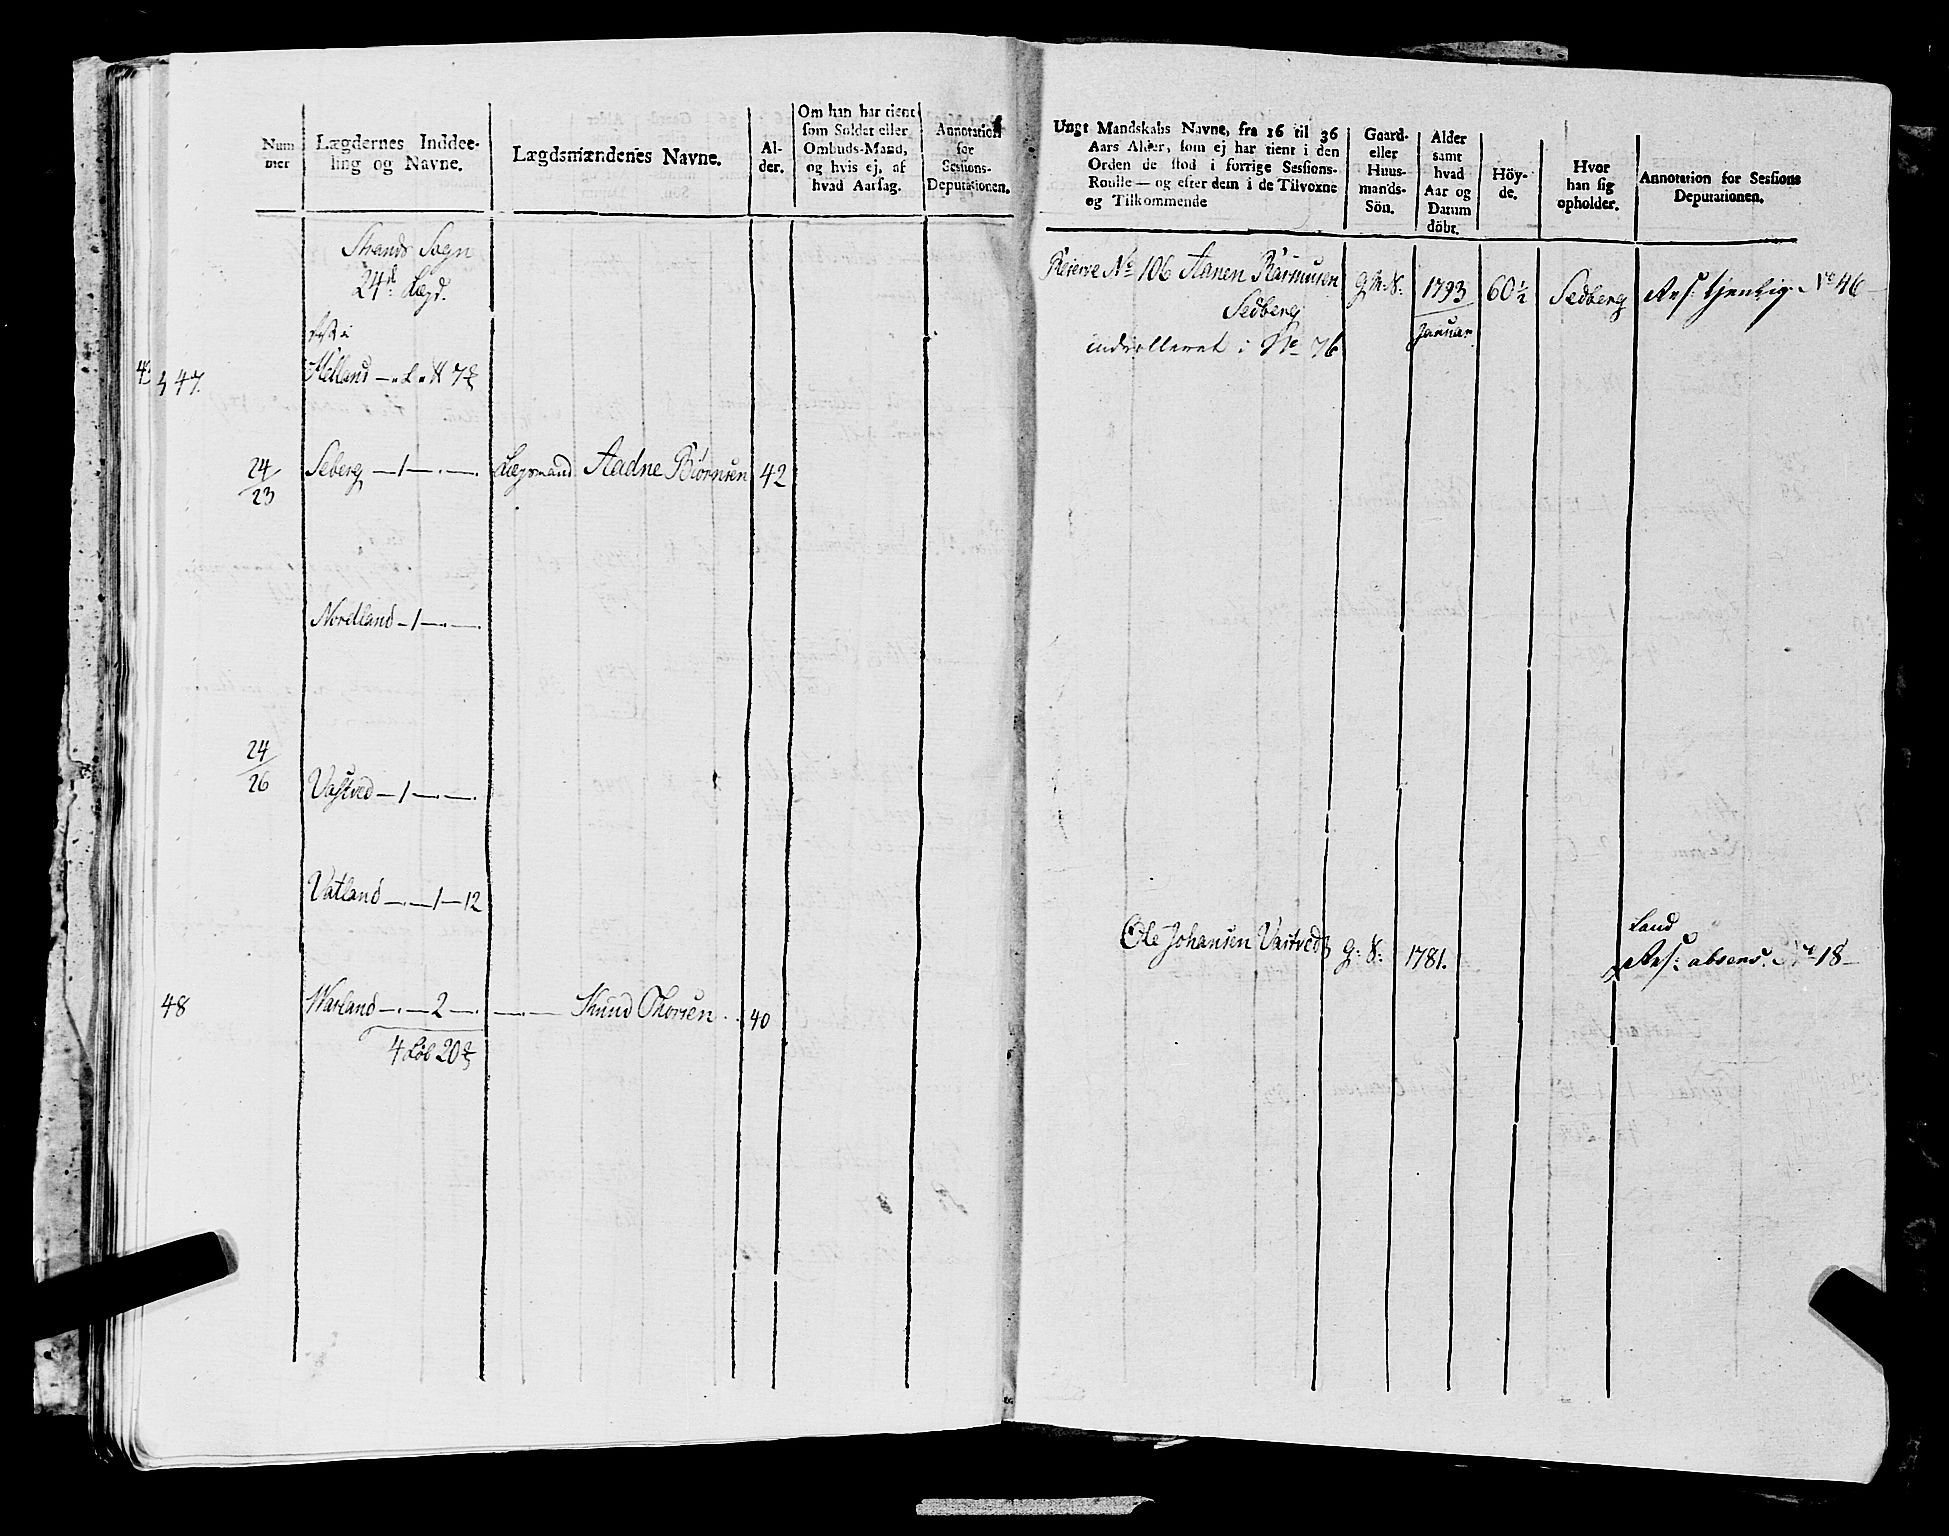 Num
mer
Lægdernes Inddee-
ling og Navne.
Lægdsmændenes Navne.
Al-
der.
Om han har tient
som Soldet eller
Ombuds-Mand,
og hvis ej, af
hvad Aarsag.
Annotation
for
Sessions-
Deputationen.
Ungt Mandskabs Navne, fra 16 til 36
Aars Alder, som ej har tient i den
Orden de stod i forrige Sessions-
Roulle — og efter dem i de Tilvoxne
og Tilkommende
Gaard-
eller
Huus-
mands-
Sön.
Alder
samt
hvad
Aar og
Datum
döbt.
Höy-
de.
Hvor
han sig
opholder.
Annotation for Sessions
Deputationen.
Strands Sogn
24d Lægd.
47. Helland
24/23 Seberg — 1 — Lægsmand Aadne Biørnsen 42
Nordland — 1 —
24/26 Vastved — 1 —
Vatland — 1 — 12
48 Warland — 2 — Knud Thorsen 40
4 Løb 20
Reserve No 106 Aanen Rasmusen G.M.S. 1793 60½ Sedberg Res: tjenlig No 46
Sedberg Januar
indrolleret i No 76
Ole Johansen Vastved G: S: 1781. Land
Res: absens. No 18